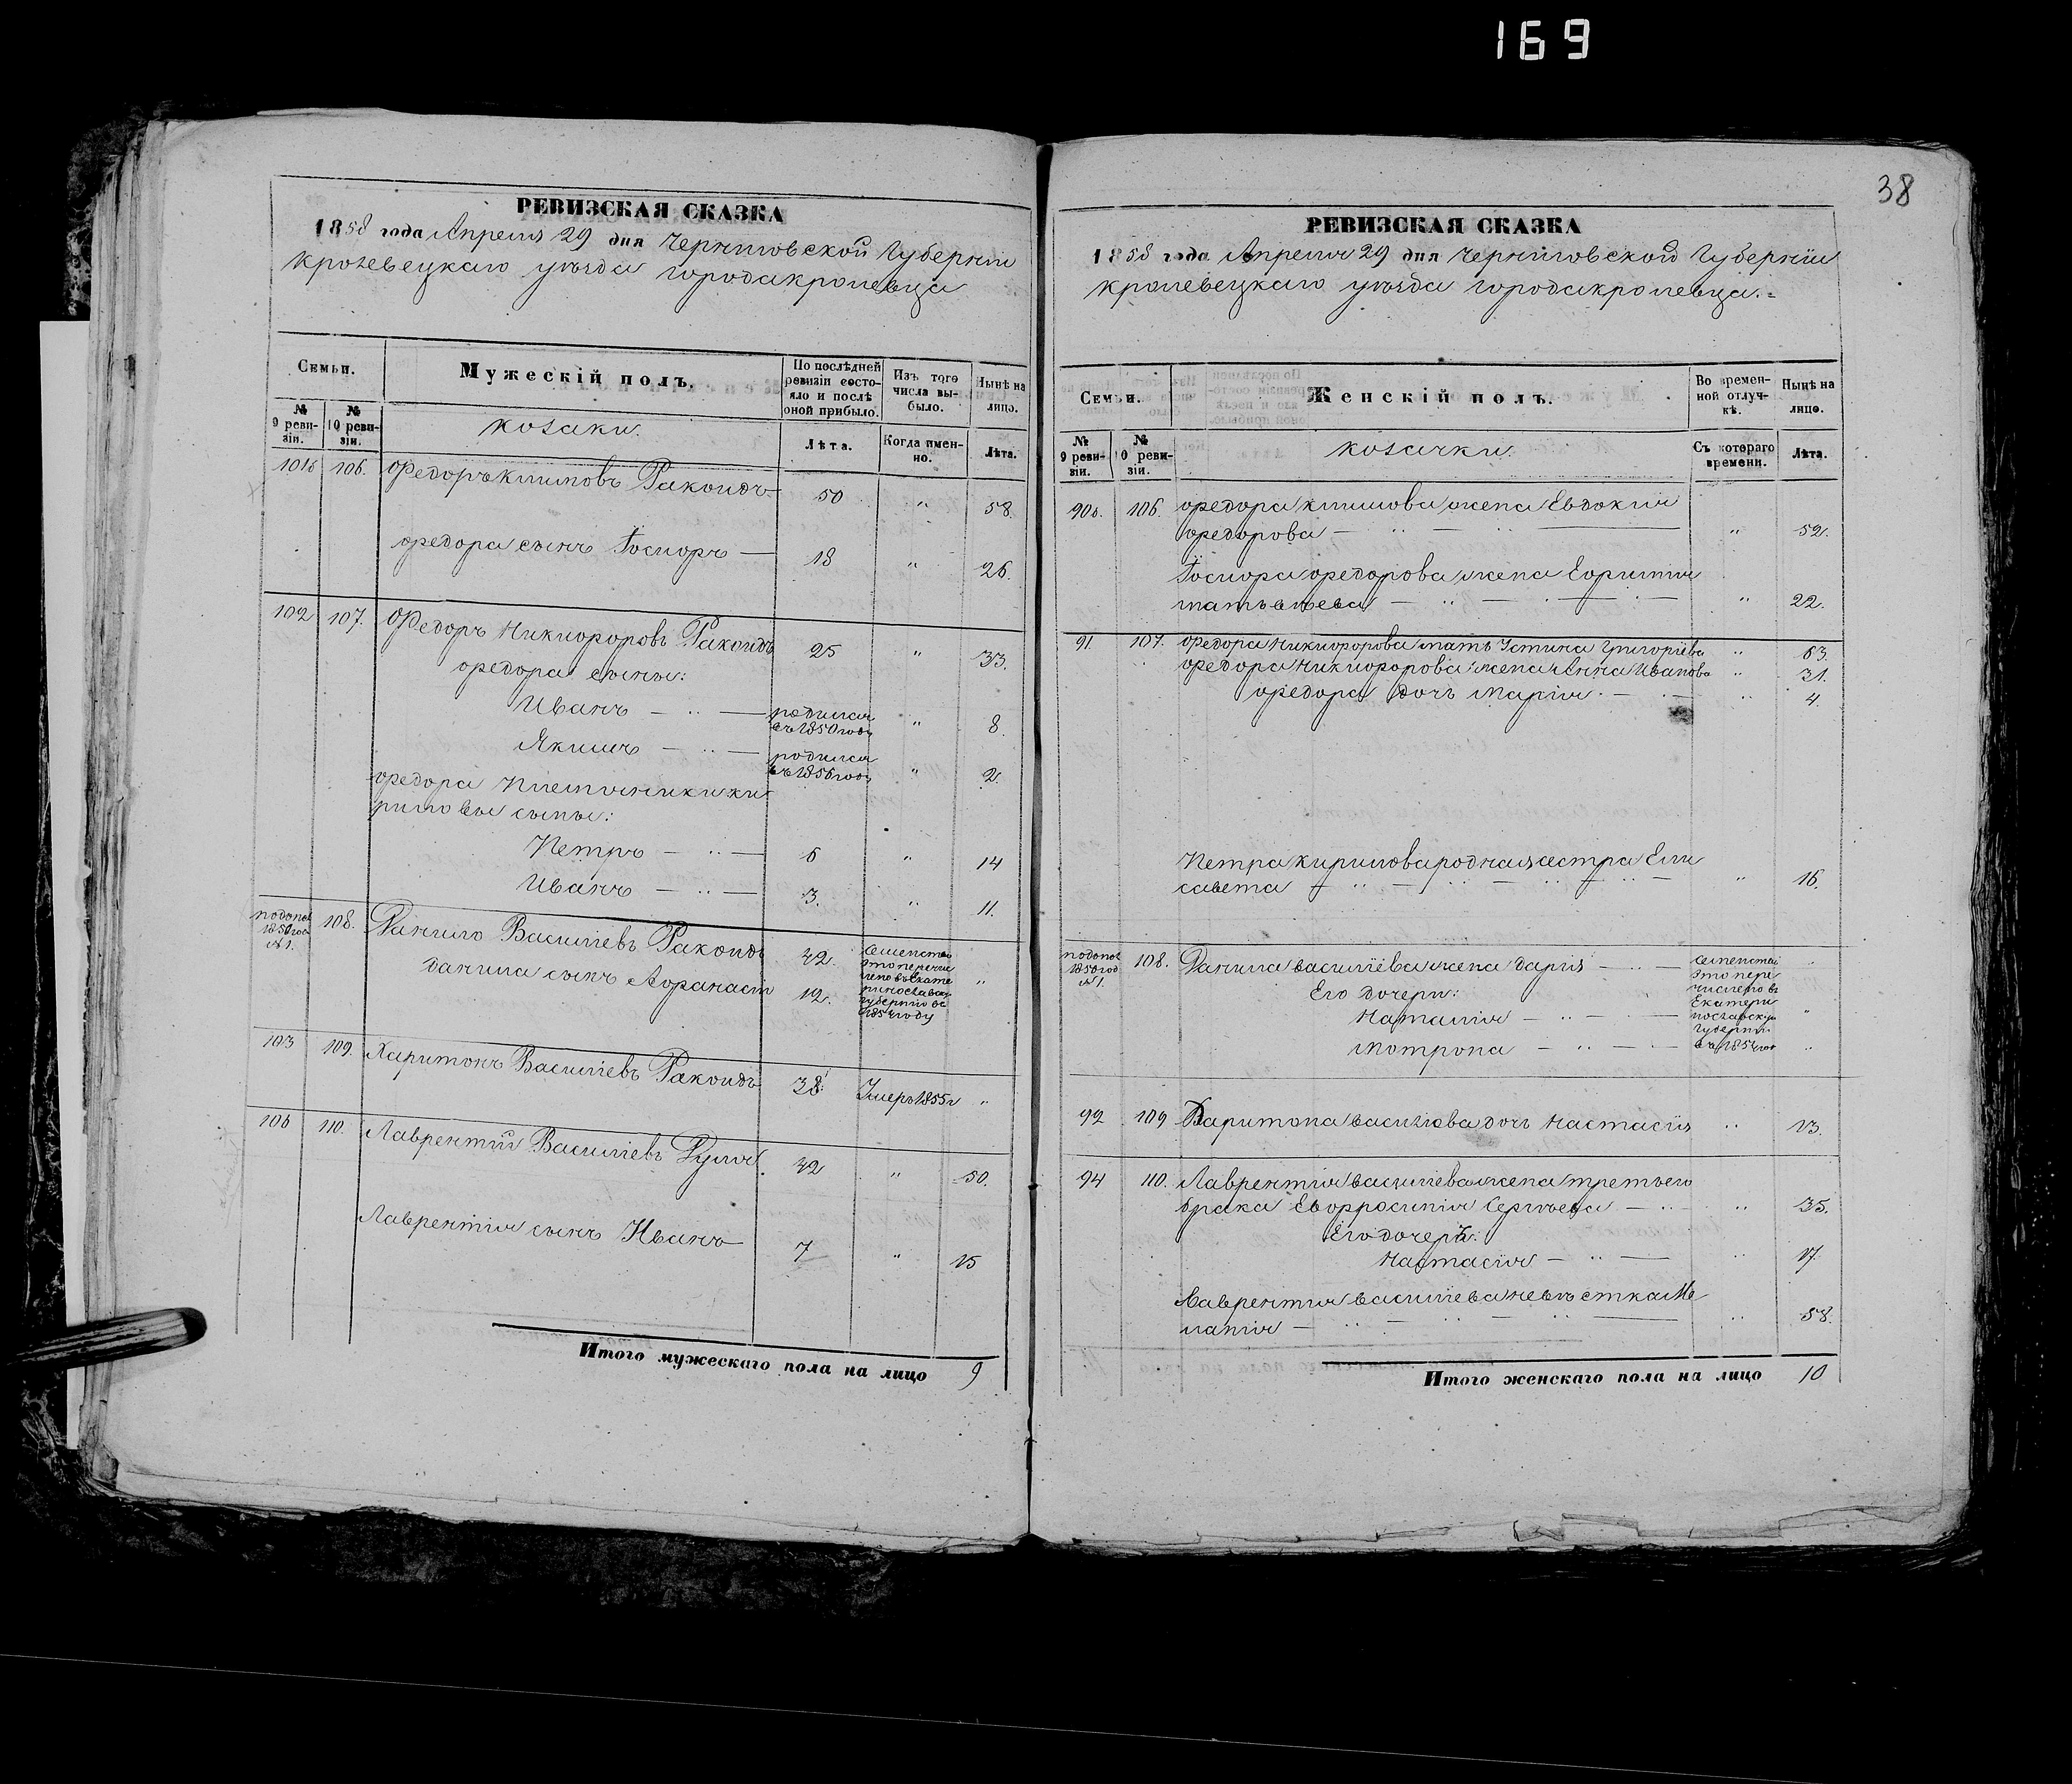 169
38
РЕВИЗСКАЯ СКАЗКА
1858 года Апреля 29 дня Черниговской Губерніи
Кролевецкаго уѣзда города Кролевца
Семьи.
Мужескій полъ.
По послѣдней ревизіи состояло и послѣ оной прибыло.
Изъ того числа выбыло.
Нынѣ на лицо.
№ 9 ревизіи.
№ 10 ревизіи.
козаки.
Лѣта.
Когда именно.
Лѣта.
106. Федоръ Климовъ Ракоидъ 50 " 58.
Федора сынъ 18 " 26.
102 107. Федоръ Никифоровъ Ракоидъ 25 " 33.
Федора сыны:
Иванъ — " — родился въ 1850 году " 8.
Якимъ — " — родился въ 1856 году " 2.
Федора племянники Ки
риловы сыны:
Петръ — " — 6 " 14
Иванъ — " — 3. " 11.
по допол 1850 год № 1. 108. Данило Василіевъ Ракоидъ 42.
Данила сынъ Афанасій 12. "
Семейство это перечислено въ Екатеринославскую губернію въ 1854 году
103 109. Харитонъ Василіевъ Ракоидъ 38. Умеръ 1855 г "
106 110. Лаврентій Василіевъ 42 " 50.
Лаврентія сынъ Иванъ 7 " 15
Итого мужескаго пола на лицо 9
РЕВИЗСКАЯ СКАЗКА
1858 года Апреля 29 дня Черниговской Губерніи
Кролевецкаго уѣзда города Кролевца.
Семьи.
Женскій полъ.
Во временной отлучкѣ.
Нынѣ на лицо.
№ 9 ревизіи.
№ 10 ревизіи.
козачки.
Съ котораго времени.
Лѣта.
90. 106. Федора Климова жена Евдокия
Федорова — " — " 52.
Федорова жена Ефимия
Матвѣева — " — " 22.
91. 107. Федора Никифорова мать Устина Григоріева " 63.
Федора Никифорова жена Анна Иванова " 31.
Федора дочь Марія — " 4.
Петра Кирилова родная сестра Ели
савета — " — " 16.
по допол 1850 год № 1. 108. Данила Василіева жена Дарія — " — "
Его дочери:
Наталія — " — "
Мотрона — " — "
Семейство это перечислено въ Екатеринославскую губернію въ 1854 году
92 109 Харитона Василіева дочь Настасія " 13.
94 110. Лаврентія Василіева жена третьего
брака Евфросинія Сергѣева — " 35.
Его дочерь:
Настасія — " — " 17.
Лаврентія Василіева невѣстка Ме
ланія — " — " 58.
Итого женскаго пола на лицо 10